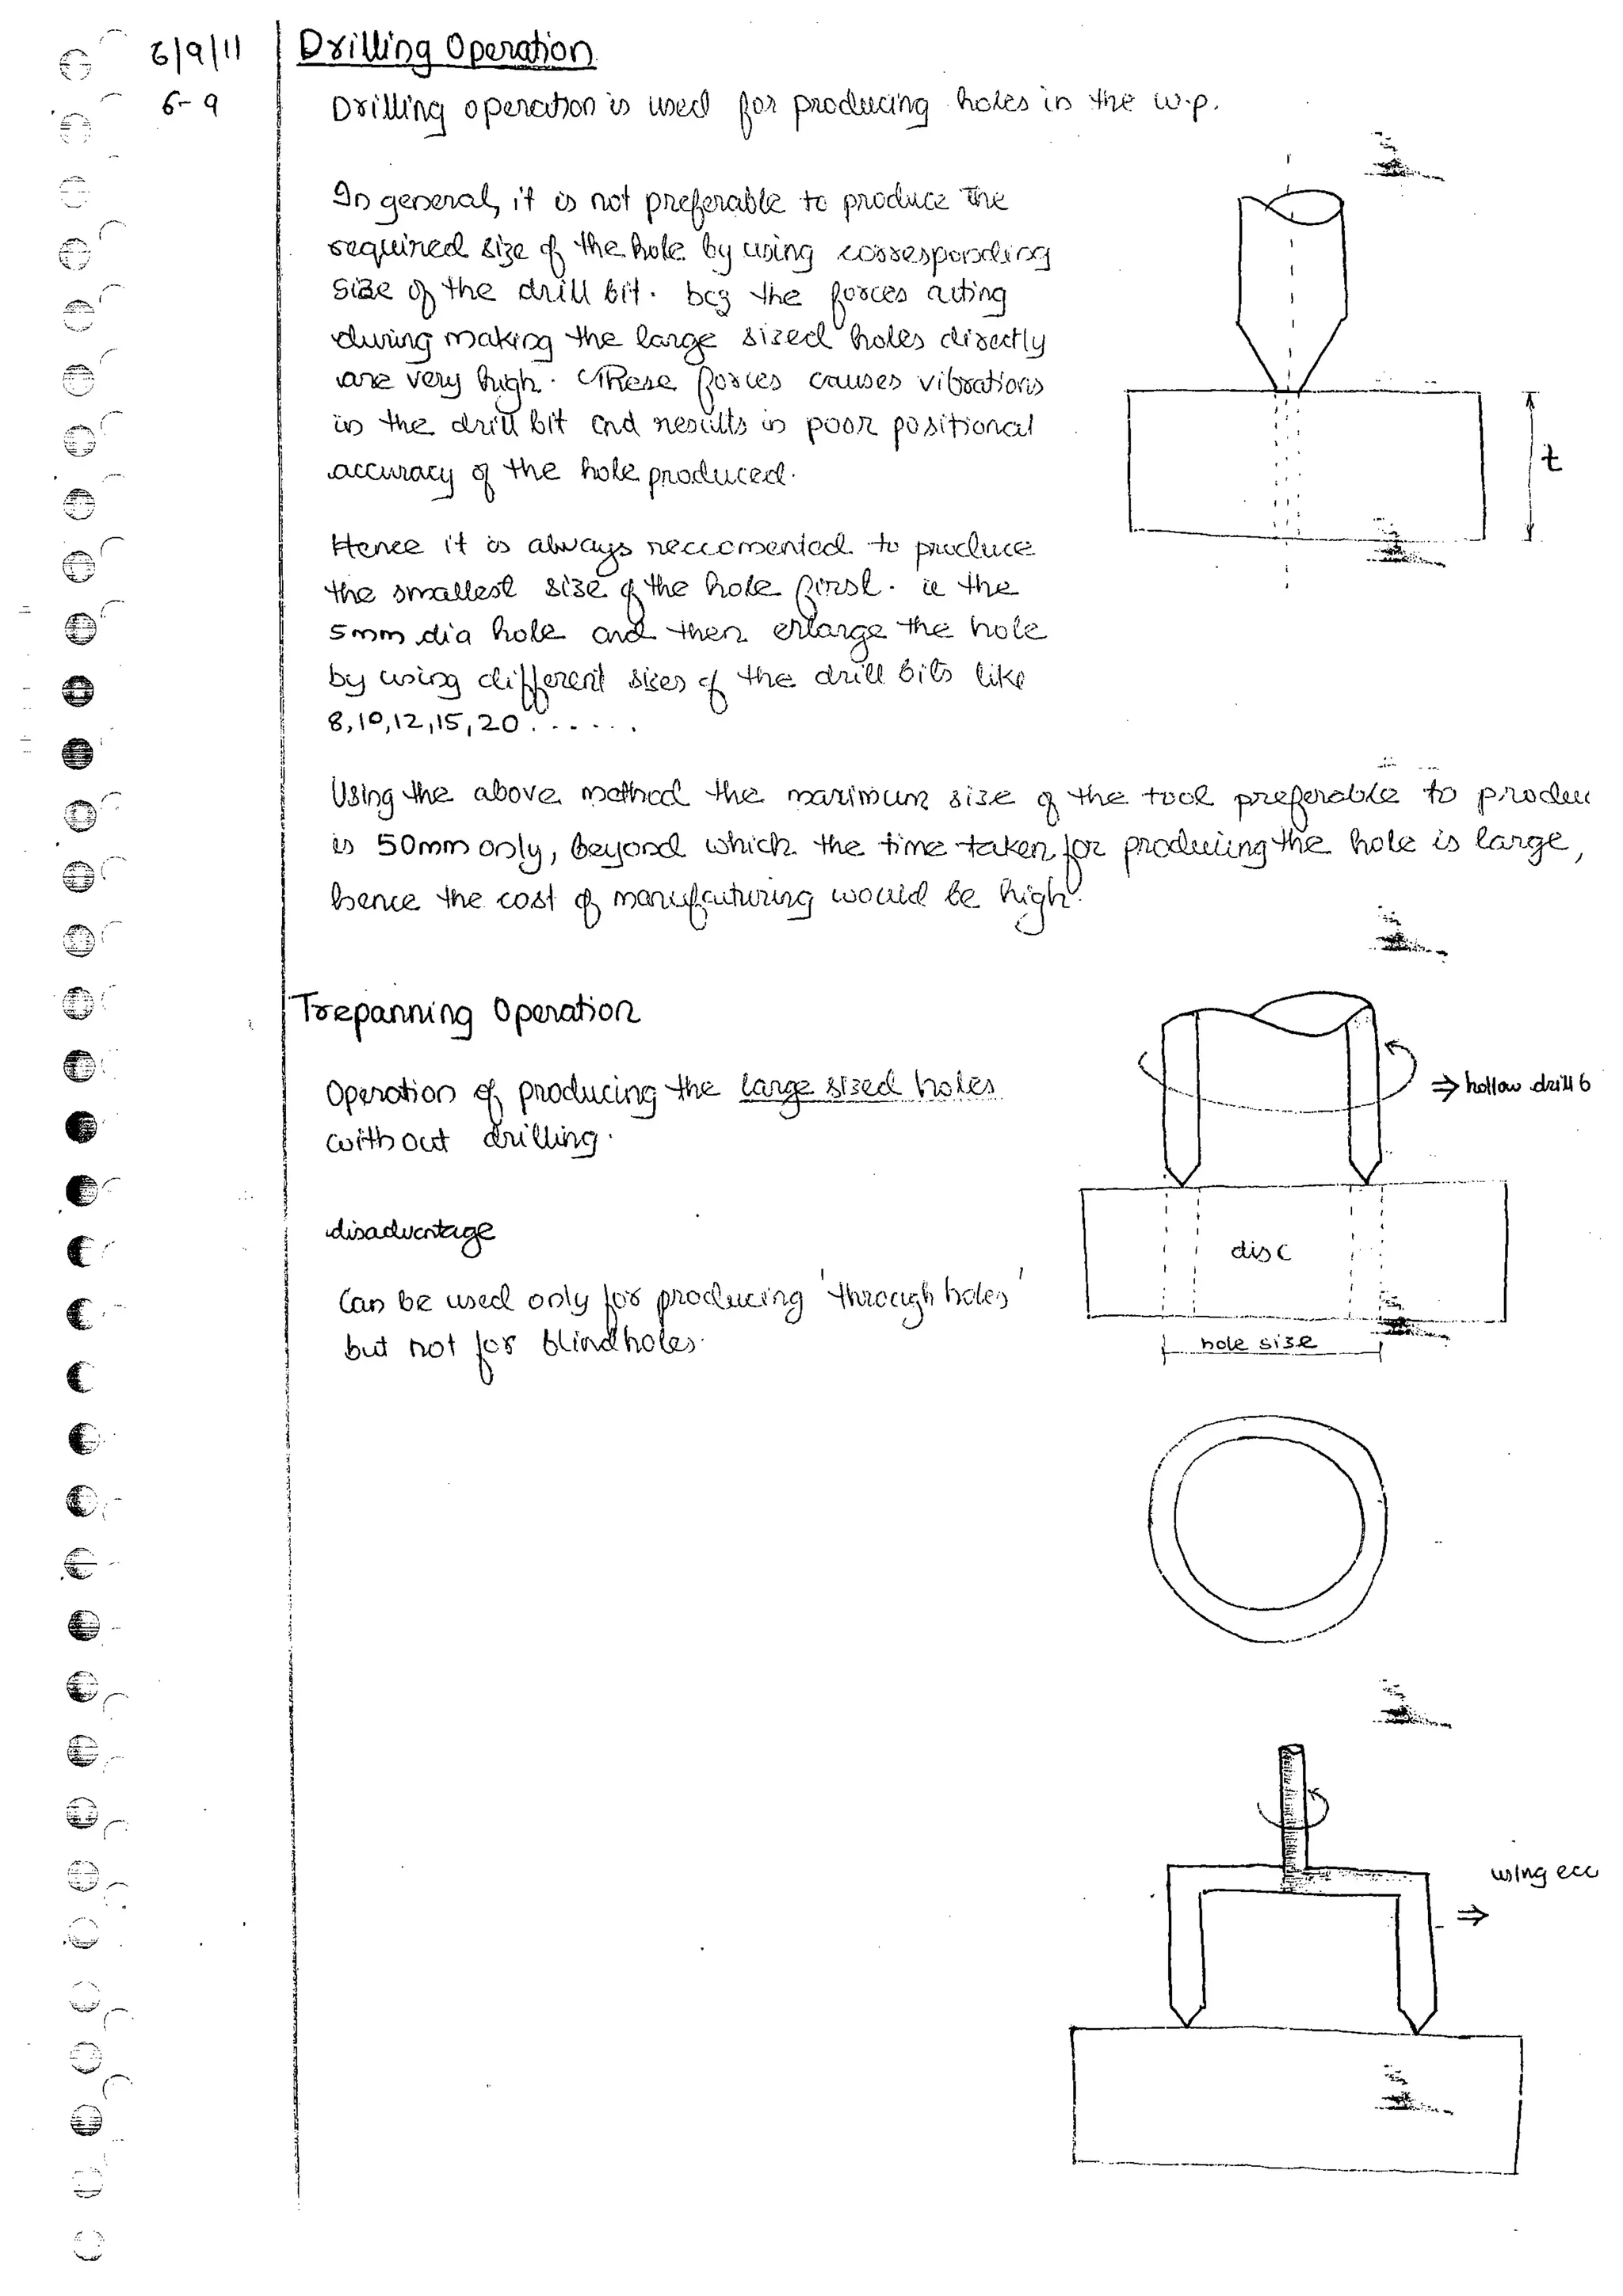 6/9/11
6-9
Drilling Operation
Drilling operation is used for producing holes in the w.p.
In general, it is not preferable to produce the
required size of the hole by using corresponding
size of the drill bit. bcz the forces acting
during making the large sized holes directly
are very high. These forces causes vibrations
in the drill bit and results in poor positional
accuracy of the hole produced.
t
Hence it is always reccomented to produce
the smallest size of the hole first. ie the
5mm dia hole and then enlarge the hole
by using different sizes of the drill bits like
8,10,12,15,20.......
Using the above method the maximum size of the tool preferable to produc
is 50mm only, beyond which the time taken for producing the hole is large,
hence the cost of manufacturing would be high.
Trepanning Operation
Operation of producing the large sized holes
without drilling.
⇒ hollow drill b
disadvantage
Can be used only for producing 'through holes'
but not for blindholes.
disc
hole size
using ecc
⇒